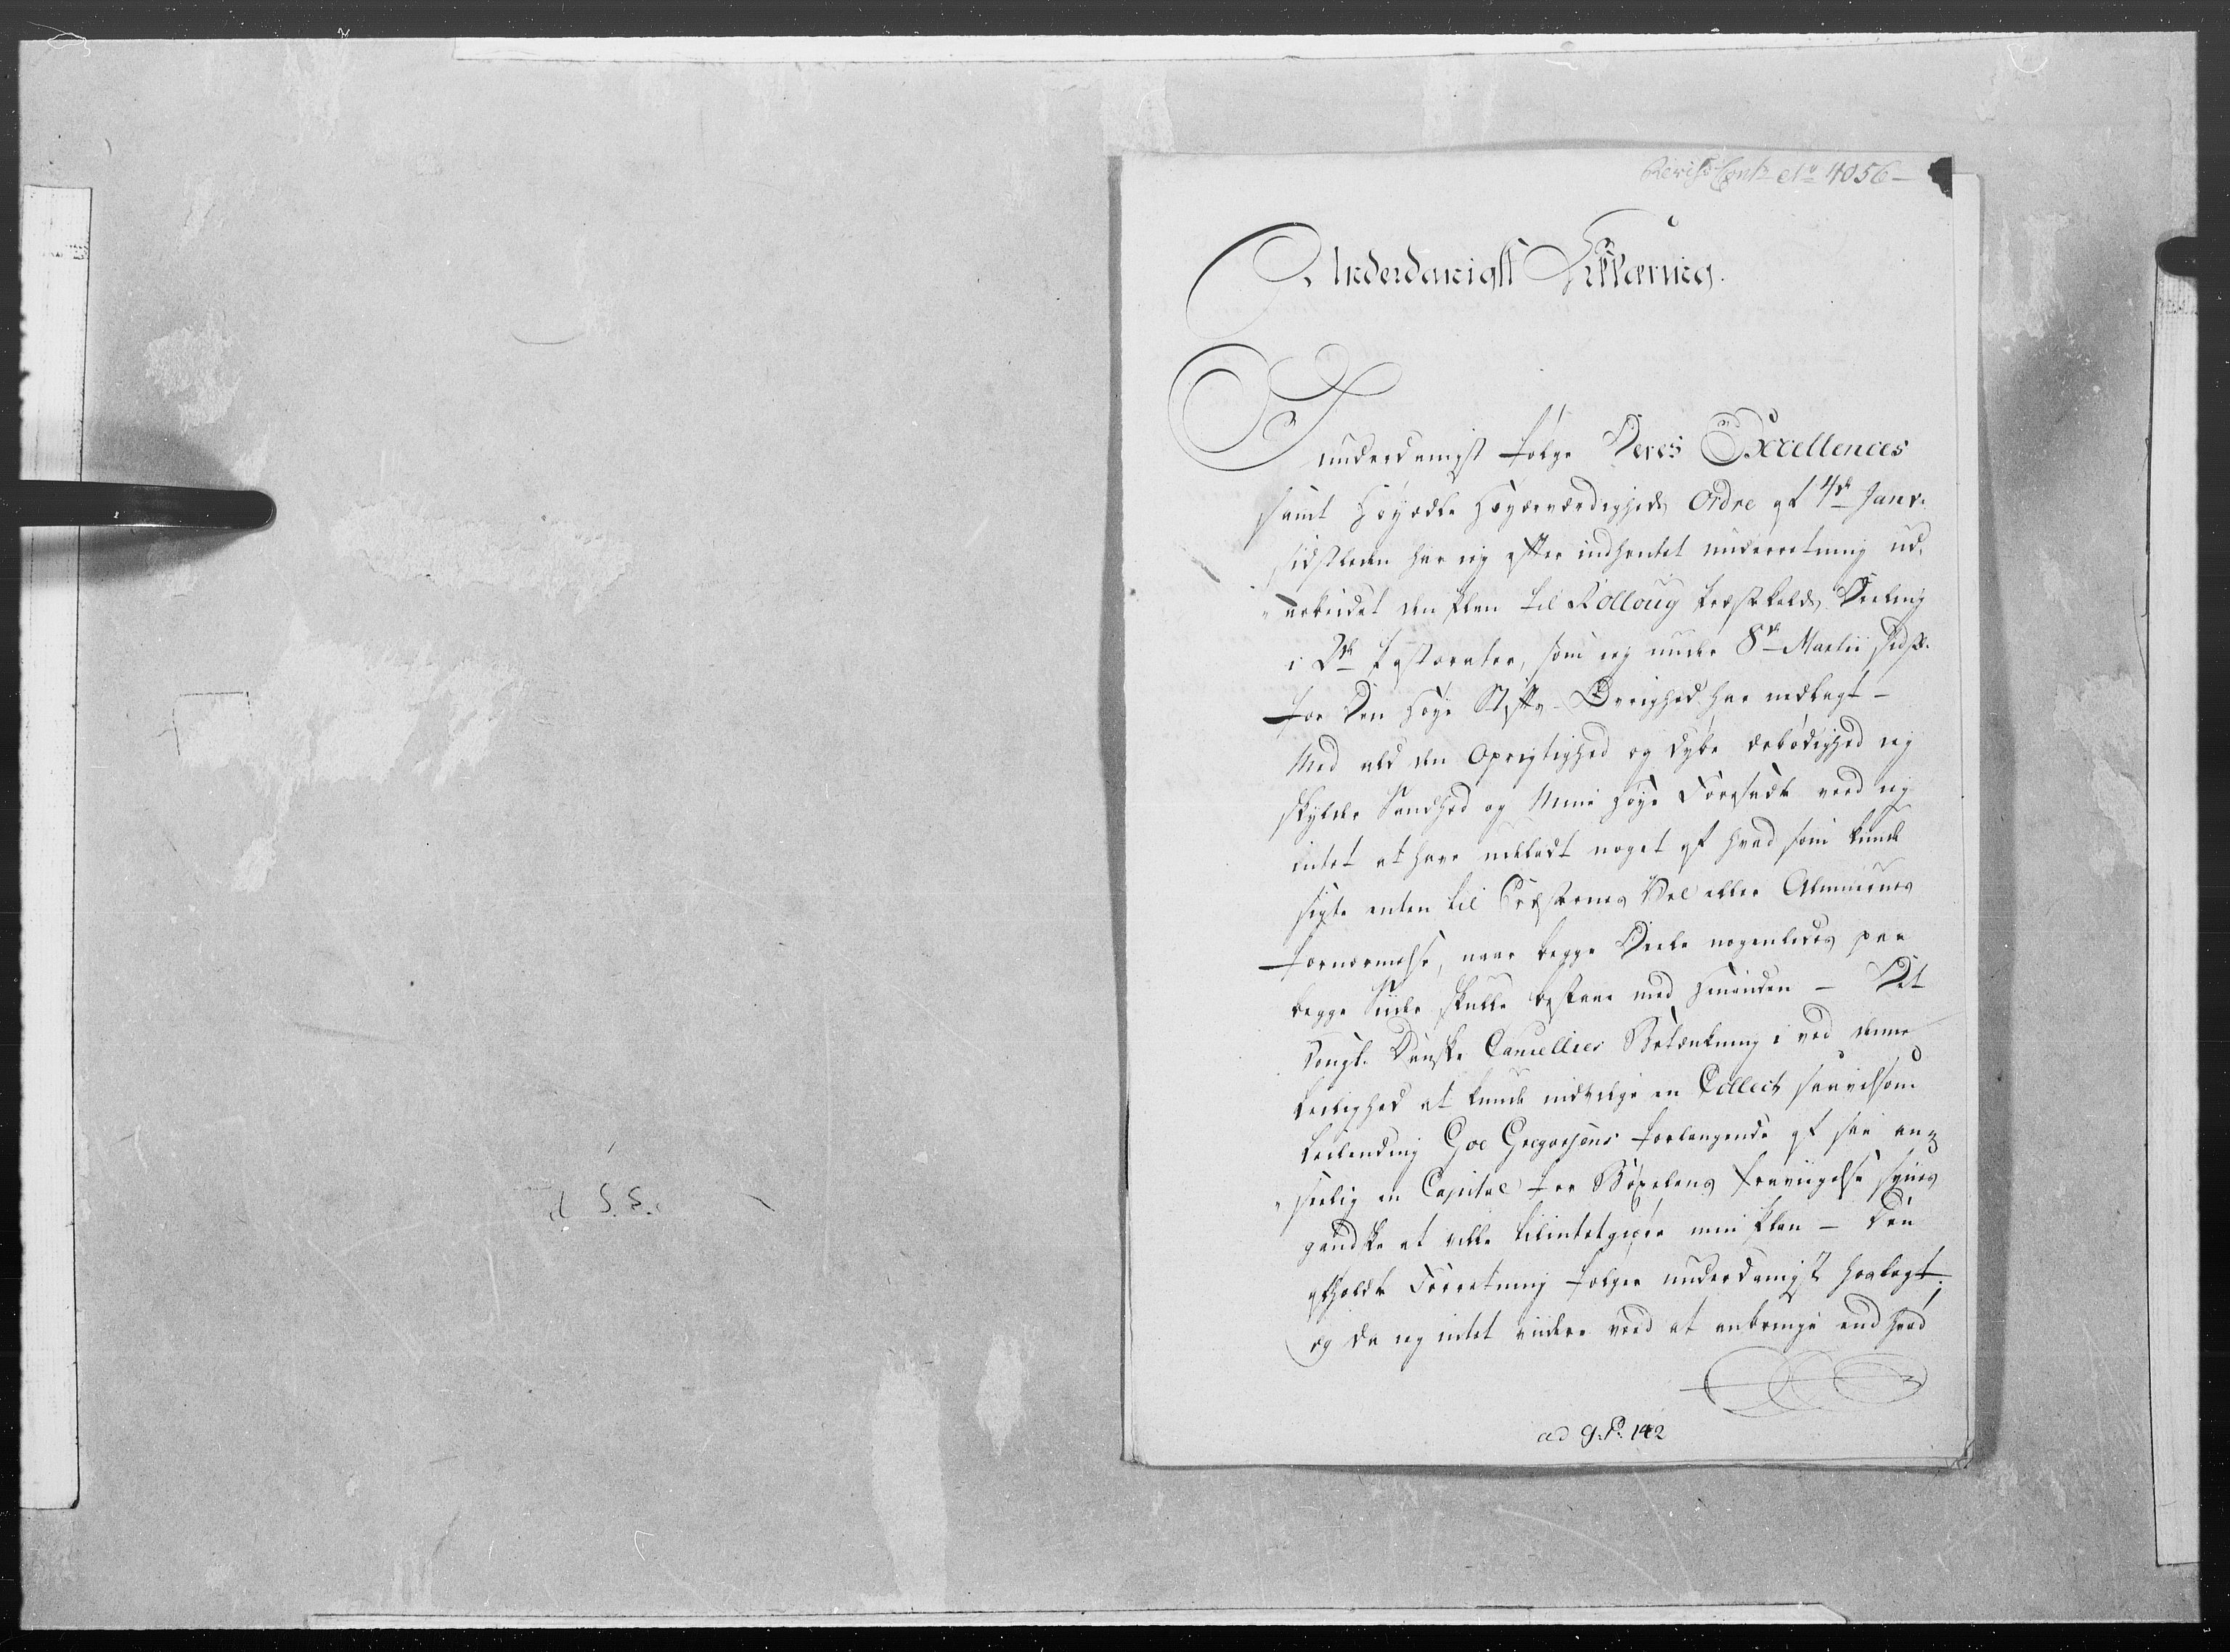 Revis: Cont: No 4056 –
Underdanigst Erklæring.
I underdanigst følge Deres Excellences
samt Høyædle Høyærværdigheds Ordre af 4de Janv.
sidstleden har jeg efter indhentet underretning ud-
arbeidet den plan til Rolloug Præstekalds Deeling
i 2de Pastorater, som jeg under 8de Martii sidst.
for Den høye Stifts-Øvrighed har nedlagt –
Med ald den Oprigtighed og dybe ærbødighed jeg
skylder Sandhed og Mine høye Foresadte veed jeg
intet at have udeladt noget af hvad som kunde
sigte enten til Præsternes Vel eller Almuernes
fornærmelse, naar begge Deele nogenledes paa
begge Siider skulle bestaae med hinanden – Det
Kongl. Danske Cancellies Betænkning i ved denne
leilighed at kunde indvilge en Collect saavelsom
Leilending Goe Gregorsens forlangende af saa an-
seelig en Capital for Bøxelens fravigelse synes
gandske at ville tilintetgiøre min plan – Den
afholdte Forretning følger underdanigst hoslagt;
og da jeg intet viidere veed at anbringe end hvad
ad G: P: 142